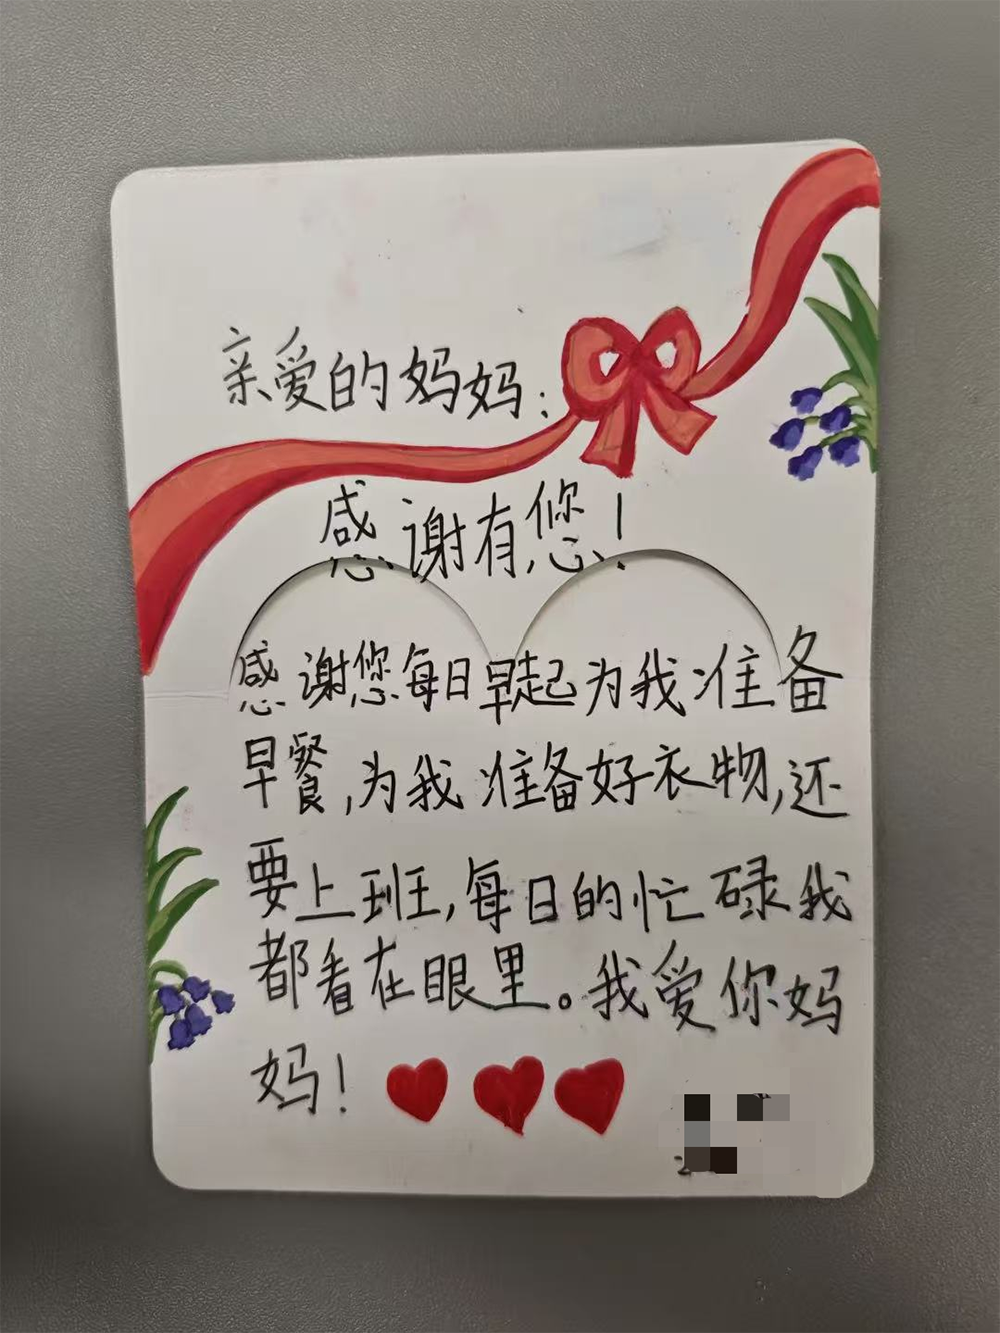 亲爱的妈妈：
感谢有您！
感谢您每日早起为我准备
早餐，为我准备好衣物，还
要上班，每日的忙碌我
都看在眼里。我爱你妈
妈！